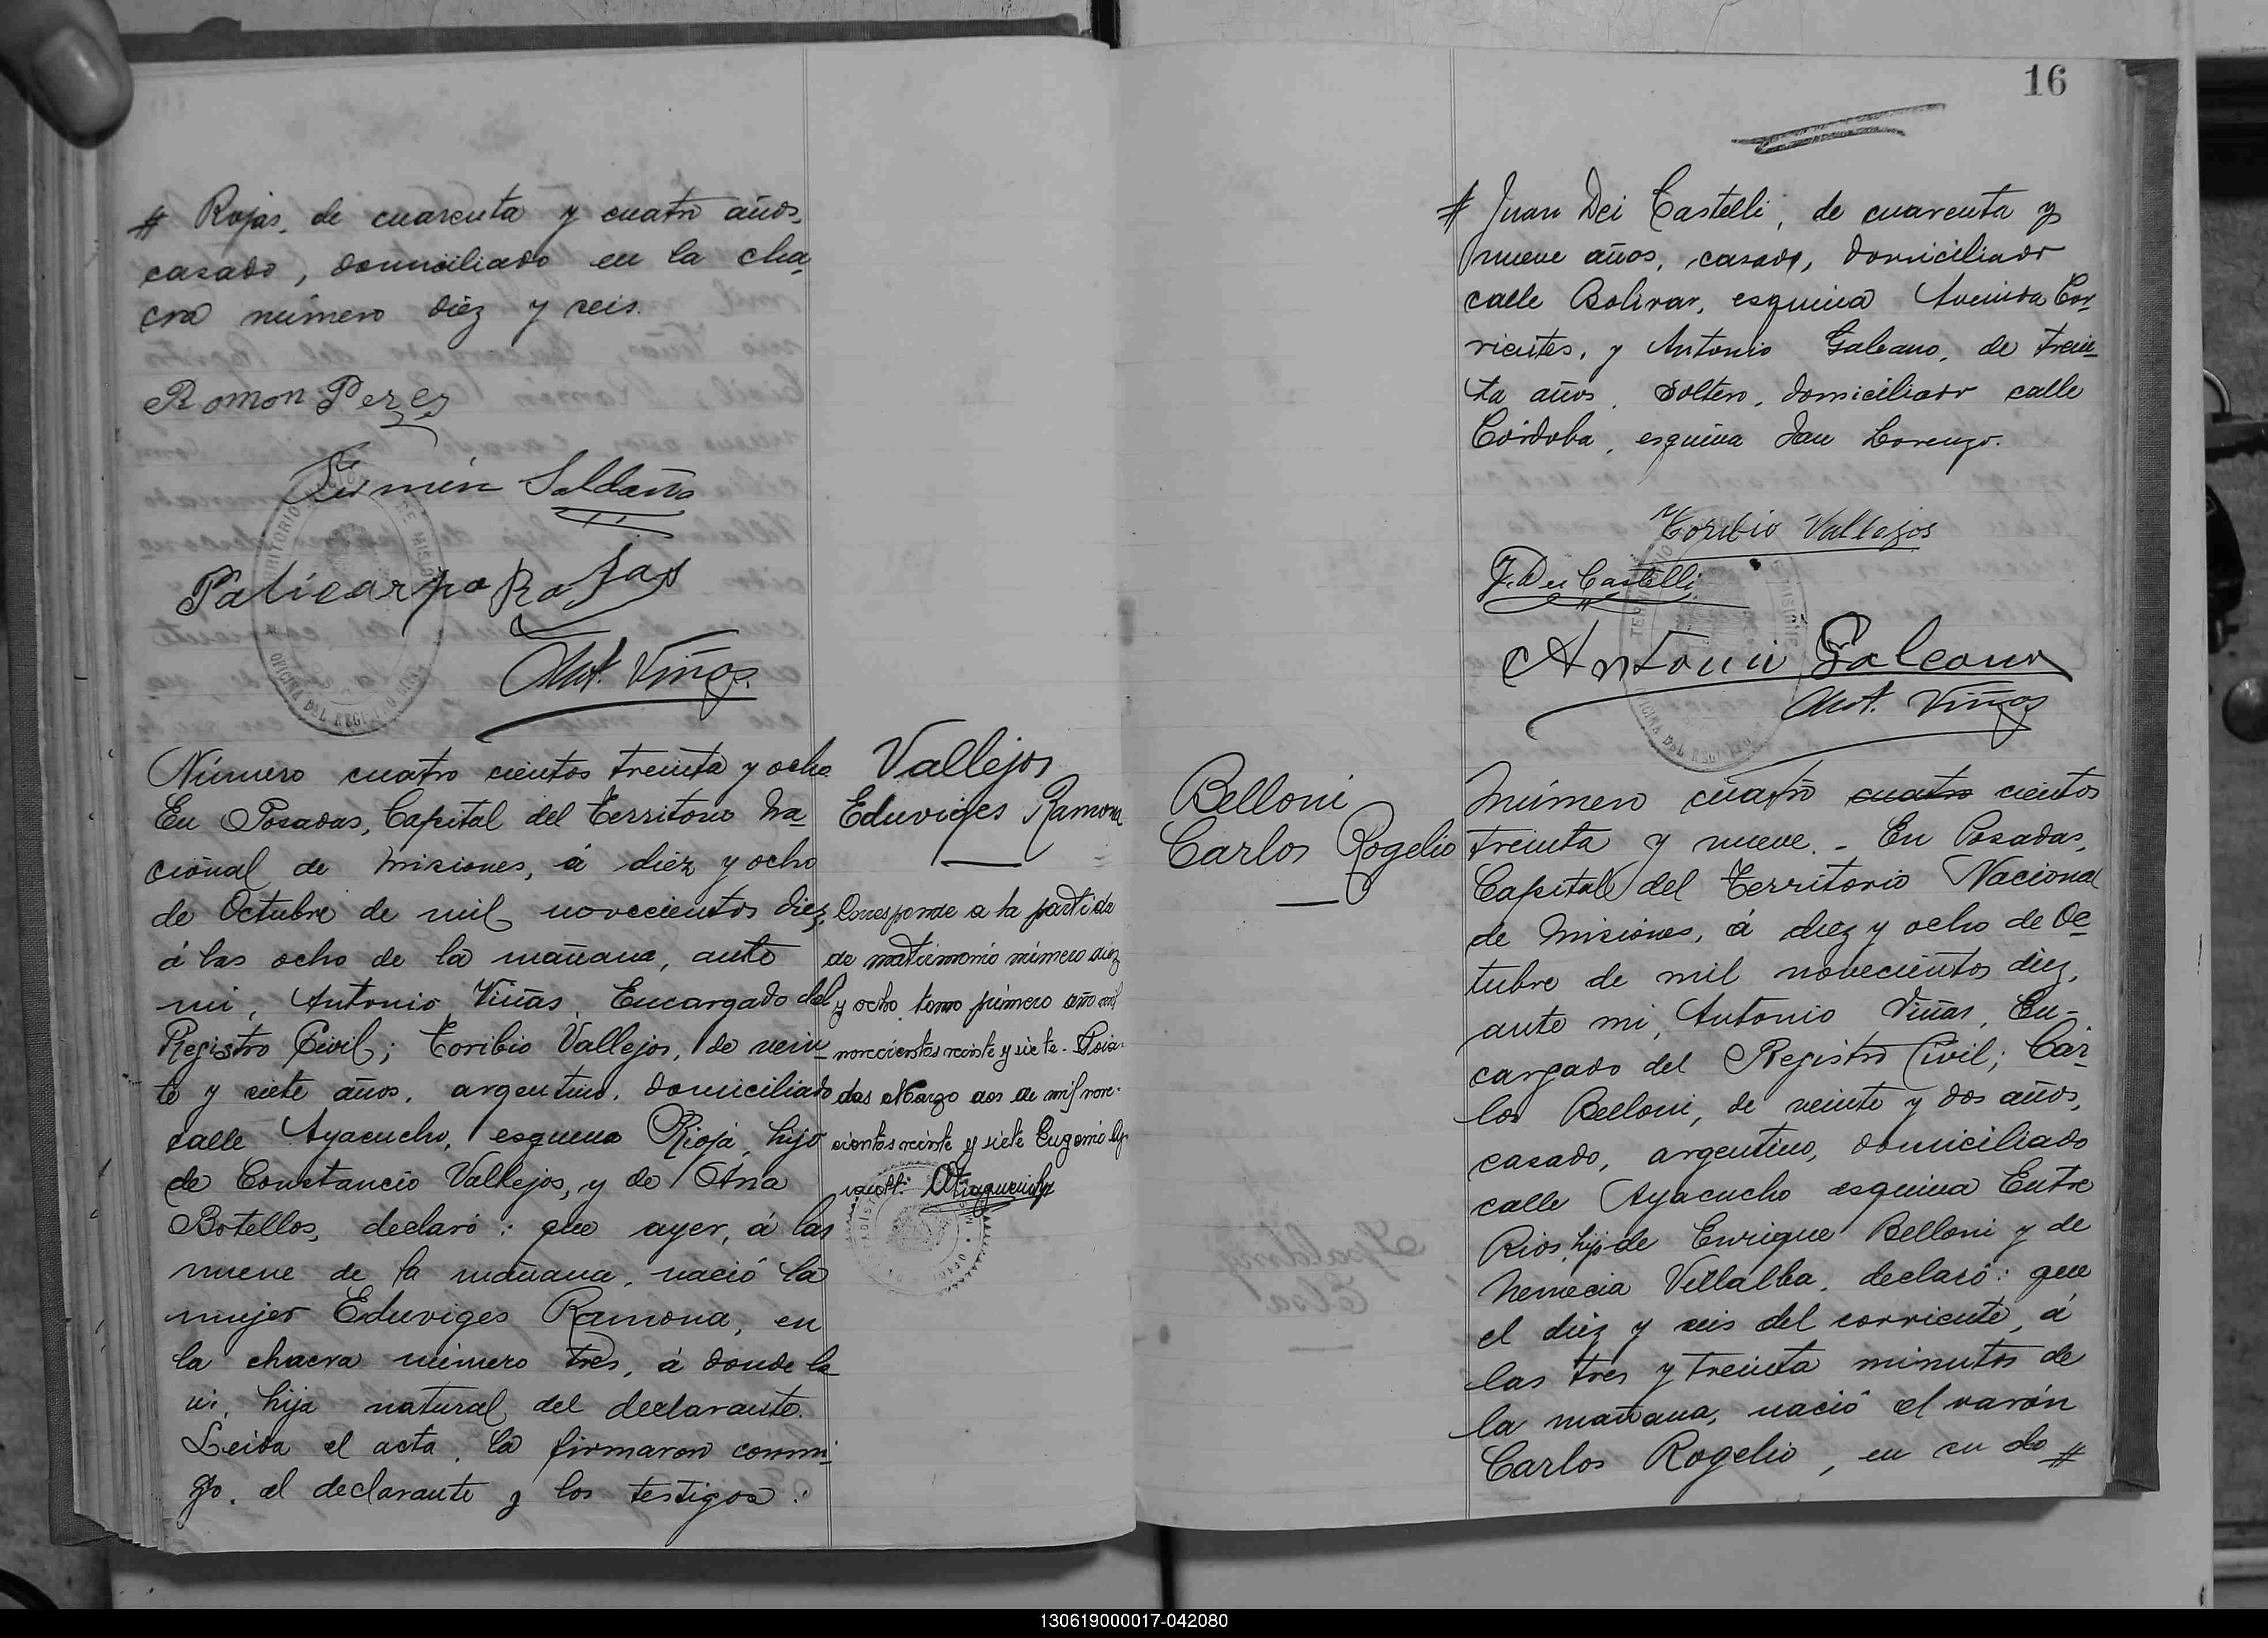 # Rojas, de cuarenta y cuatro años,
casado, domiciliado en la cha-
cra número diez y seis.
Ramon Perez
Fermín Saldaña
Policarpo Rojas
Ant. Viñas
Número cuatro cientos treinta y ocho
En Posadas, Capital del Territorio Na-
cional de Misiones, á diez y ocho
de Octubre de mil novecientos diez,
á las ocho de la mañana, ante
mi, Antonio Viñas, Encargado del
Registro Civil; Toribio Vallejos, de vein-
te y siete años, argentino, domiciliado
calle Ayacucho, esquina Rioja, hijo
de Constancio Vallejos, y de Ana
Botellos, declaró: que ayer, á las
nueve de la mañana, nació la
mujer Eduviges Ramona, en
la chacra número tres, á donde la
vi, hija natural del declarante.
Leida el acta, la firmaron conmi-
go, el declarante y los testigos:
Vallejos
Eduviges Ramona
Corresponde a la partida
de matrimonio número diez
y ocho tomo primero año mil
novecientos veinte y siete. Posa-
das Marzo dos de mil nove-
cientos veinte y siete Eugenio
16
# Juan Dei Castelli, de cuarenta y
nueve años, casado, domiciliado
calle Bolivar, esquina Avenida Cor-
rientes, y Antonio Galeano, de trein-
ta años, soltero, domiciliado calle
Córdoba, esquina San Lorenzo.
Toribio Vallejos
J. Dei Castelli
Antonio Galeano
Ant. Viñas
Belloni
Carlos Rogelio
Número cuatro cuatro cientos
treinta y nueve. - En Posadas,
Capital del Territorio Nacional
de Misiones, á diez y ocho de Oc-
tubre de mil novecientos diez,
ante mi, Antonio Viñas, En-
cargado del Registro Civil; Car-
los Belloni, de veinte y dos años,
casado, argentino, domiciliado
calle Ayacucho esquina Entre
Rios, hijo de Enrique Belloni y de
Nemecia Villalba, declaró: que
el diez y seis del corriente, á
las tres y treinta minutos de
la mañana, nació el varón
Carlos Rogelio, en su do #
130619000017-042080